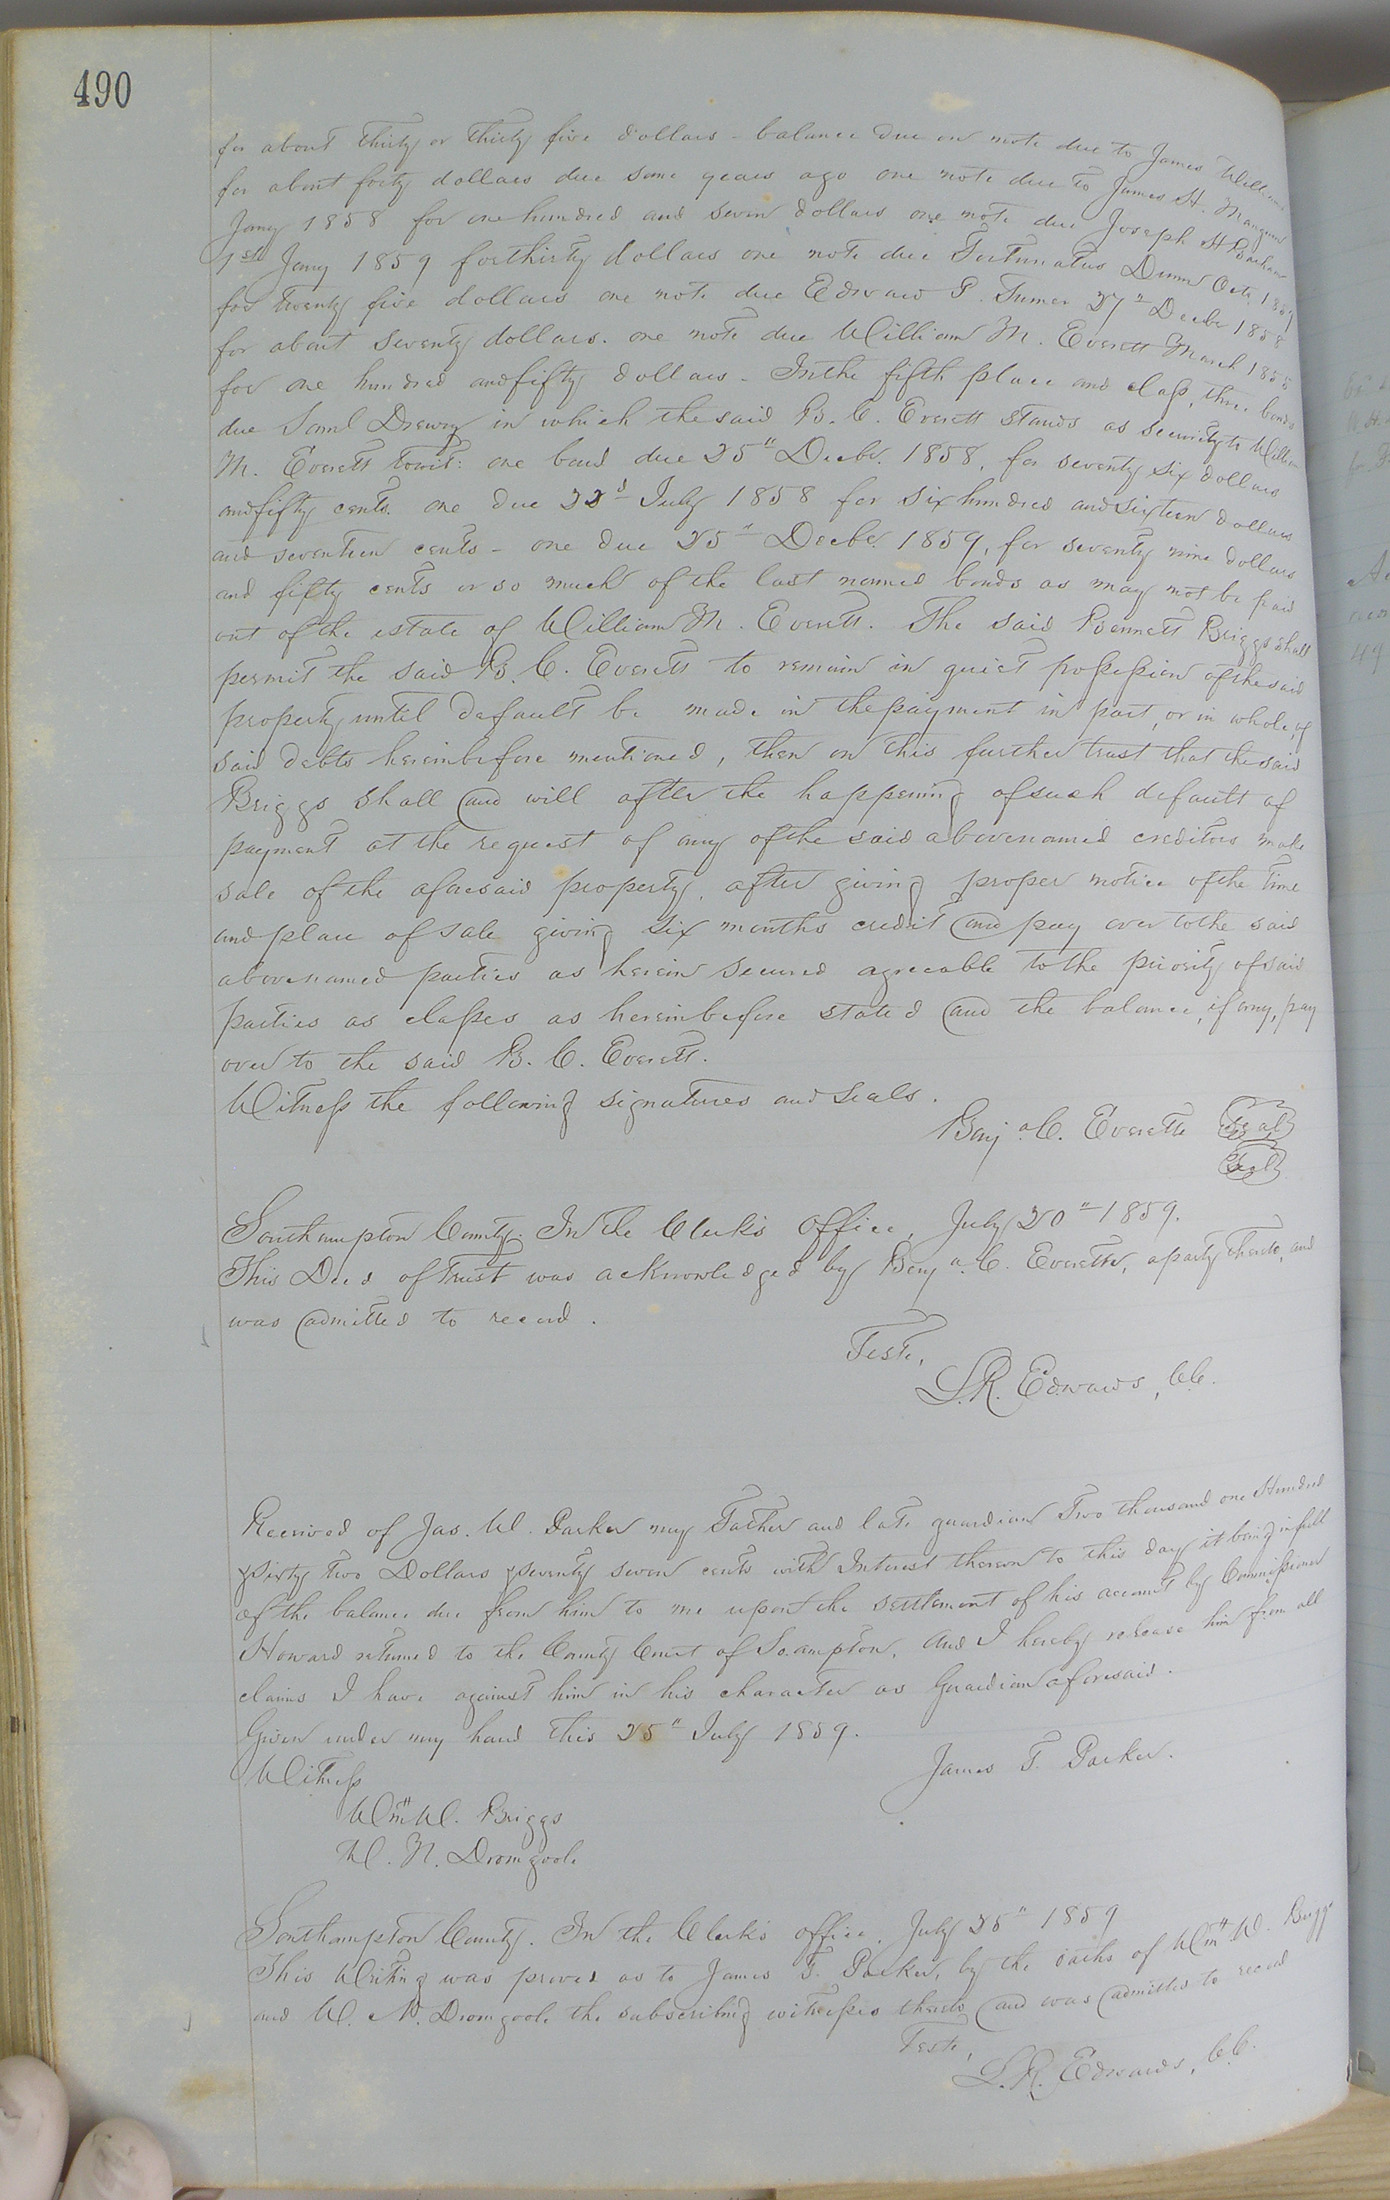 490
for about thirty or thirty five dollars - balance due on note due to James William
for about forty dollars due some years ago one note due to James H. Mangum
Jany 1858 for one hundred and seven dollars one note due Joseph H
1st Jany 1859 for thirty dollars one note due Fortunatus Dunn Octr 1859
for twenty five dollars one note due Edward P. Turner 27" Decbr 1858
for about seventy dollars. one note due William M. Everett March 1858
for one hundred and fifty dollars - In the fifth place and class, three bonds
due Saml Drewry in which the said B. C. Everett stands as security to William
M. Everett towit: one bond due 25" Decbr. 1858, for seventy six dollars
and fifty cents. one due 22d July 1858 for six hundred and sixteen dollars
and seventeen cents - one due 25" Decbr. 1859, for seventy nine dollars
and fifty cents or so much of the last named bonds as may not be paid
out of the estate of William M. Everett. The said Bennett Briggs shall
permit the said B. C. Everett to remain in quiet possession of the said
property until default be made in the payment in part, or in whole, of
said debts hereinbefore mentioned, then on this further trust that the said
Briggs shall and will after the happening of such default of
payment at the request of any of the said abovenamed creditors make
sale of the aforesaid property, after giving proper notice of the time
and place of sale giving six months credit and pay over to the said
abovenamed parties as herein secured agreeable to the priority of said
parties as classes as hereinbefore stated and the balance, if any, pay
over to the said B. C. Everett.
Witness the following signatures and seals.
Benja C. Everett Seal
Seal
Southampton County. In the Clerk's office, July 20" 1859.
This Deed of Trust was acknowledged by Benja C. Everett, a party thereto, and
was admitted to record.
Teste,
L. R. Edwards, C.C.
Received of Jas. W. Parker my Father and late guardian Two thousand one Hundred
& sixty two Dollars & seventy seven cents with Interest thereon to this day it being in full
of the balance due from him to me upon the settlement of his account by Commissioner
Howard returned to the County Court of So.ampton. And I hereby release him from all
claims I have against him in his character as Guardian aforesaid.
Given under my hand this 25" July 1859.
Witness
James T. Parker.
Wm W. Briggs
W. N. Dromgoole
Southampton County. In the Clerk's office, July 25" 1859
This Writing was proved as to James T. Parker, by the oaths of Wm W. Briggs
and W. N. Dromgoole the subscribing witnesses thereto and was admitted to record
Teste,
L. R. Edwards, C.C.